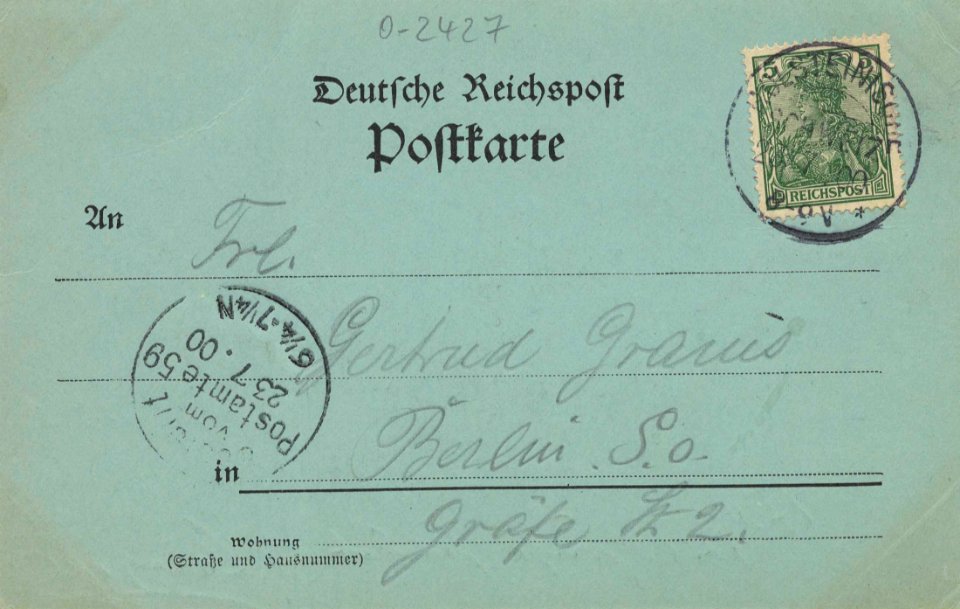 0-2427
Deutsche Reichspost
Postkarte
5
REICHSPOST
An Frl.
Gertrud
Berlin S.o.
in
Gräfe Str 2.
Wohnung
(Straße und Hausnummer)
vom
Postamte 59
23 7.00
6¼-7¼N